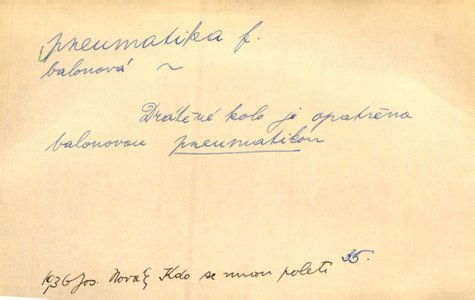 pneumatika f.
balonová ~
Drátěné kolo je opatřeno
balonovou pneumatikou
1936 Jos. Novák, Kdo se mnou poletí 35.